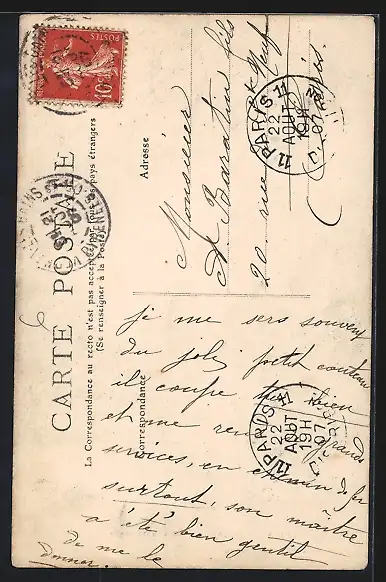 CARTE POSTALE
La Correspondance au recto n'est pas acceptée par tous les pays étrangers
(Se renseigner à la Poste)
Correspondance
Adresse
POSTES
10
Monsieur
A. Baratin fils
20 rue Neuf
Paris
PARIS 11
22
AOUT
19H
07
je me sers souvent
du joli petit couteau
il coupe très bien
et me rend grands
services, en chemin de fer
surtout, son maître
a été bien gentil
de me le
donner
PARIS 11
22
AOUT
19H
07